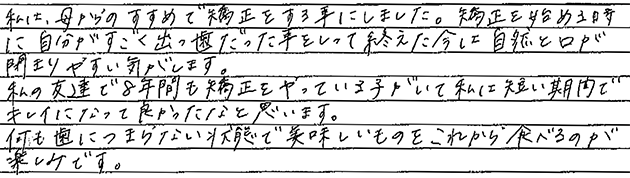 私は、母からのすすめで矯正をする事にしました。矯正を始め立時
に自分がすごく出っ歯だった事をしって終えた今は自然と口が
閉まりやすい気がします。
私の友達で8年間も矯正をやっている子がいて私は短い期間で
キレイになって良かったなと思います。
何も歯につまらない状態で美味しいものをこれから食べるのが
楽しみです。